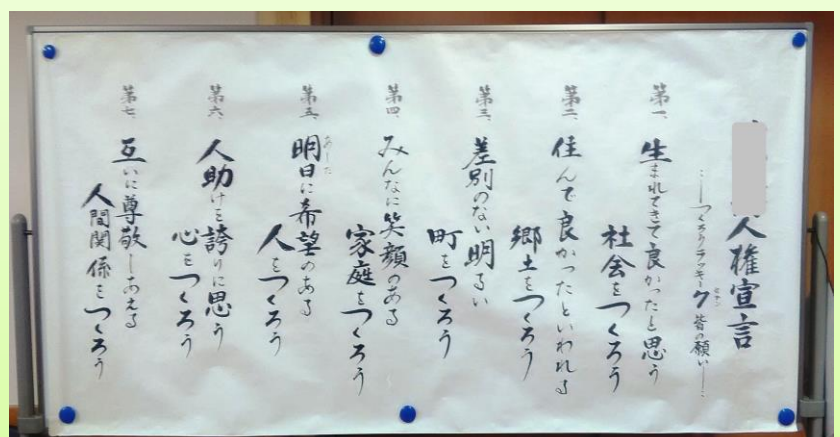 人権宣言
…―つくろうラッキー7 皆の願い―…
セブン
第一、
生まれてきて良かったと思う
社会をつくろう
第二、
住んで良かったといわれる
郷土をつくろう
第三、
差別のない明るい
町をつくろう
第四、
みんなに笑顔のある
家庭をつくろう
第五、
明日に希望のある
あした
人をつくろう
第六、
人助けを誇りに思う
心をつくろう
第七、
互いに尊敬しあえる
人間関係をつくろう